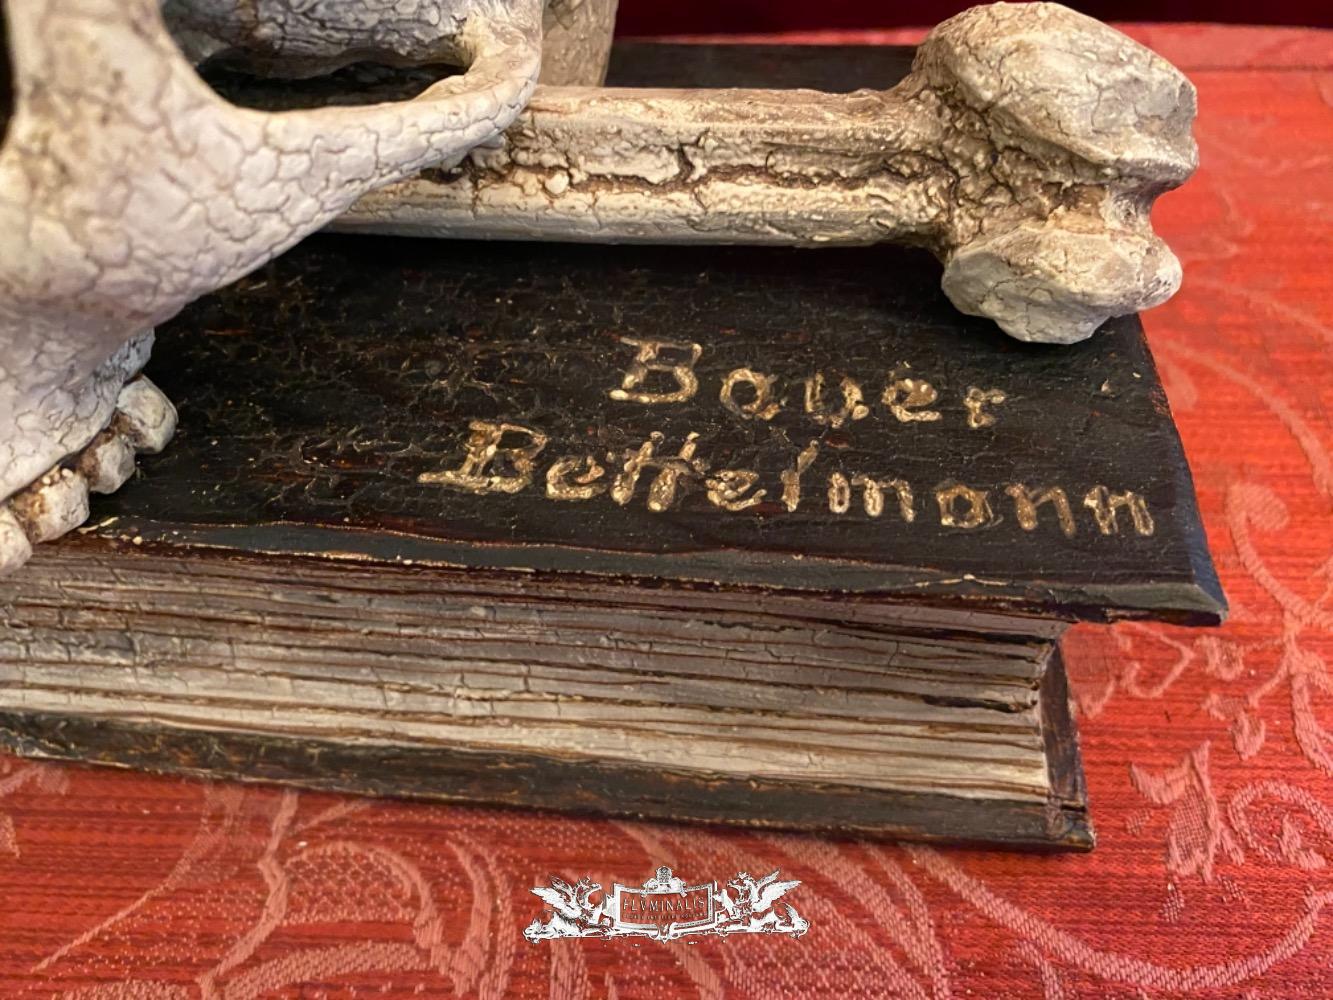 Bayer
Bettelmann
FLVMINALIS